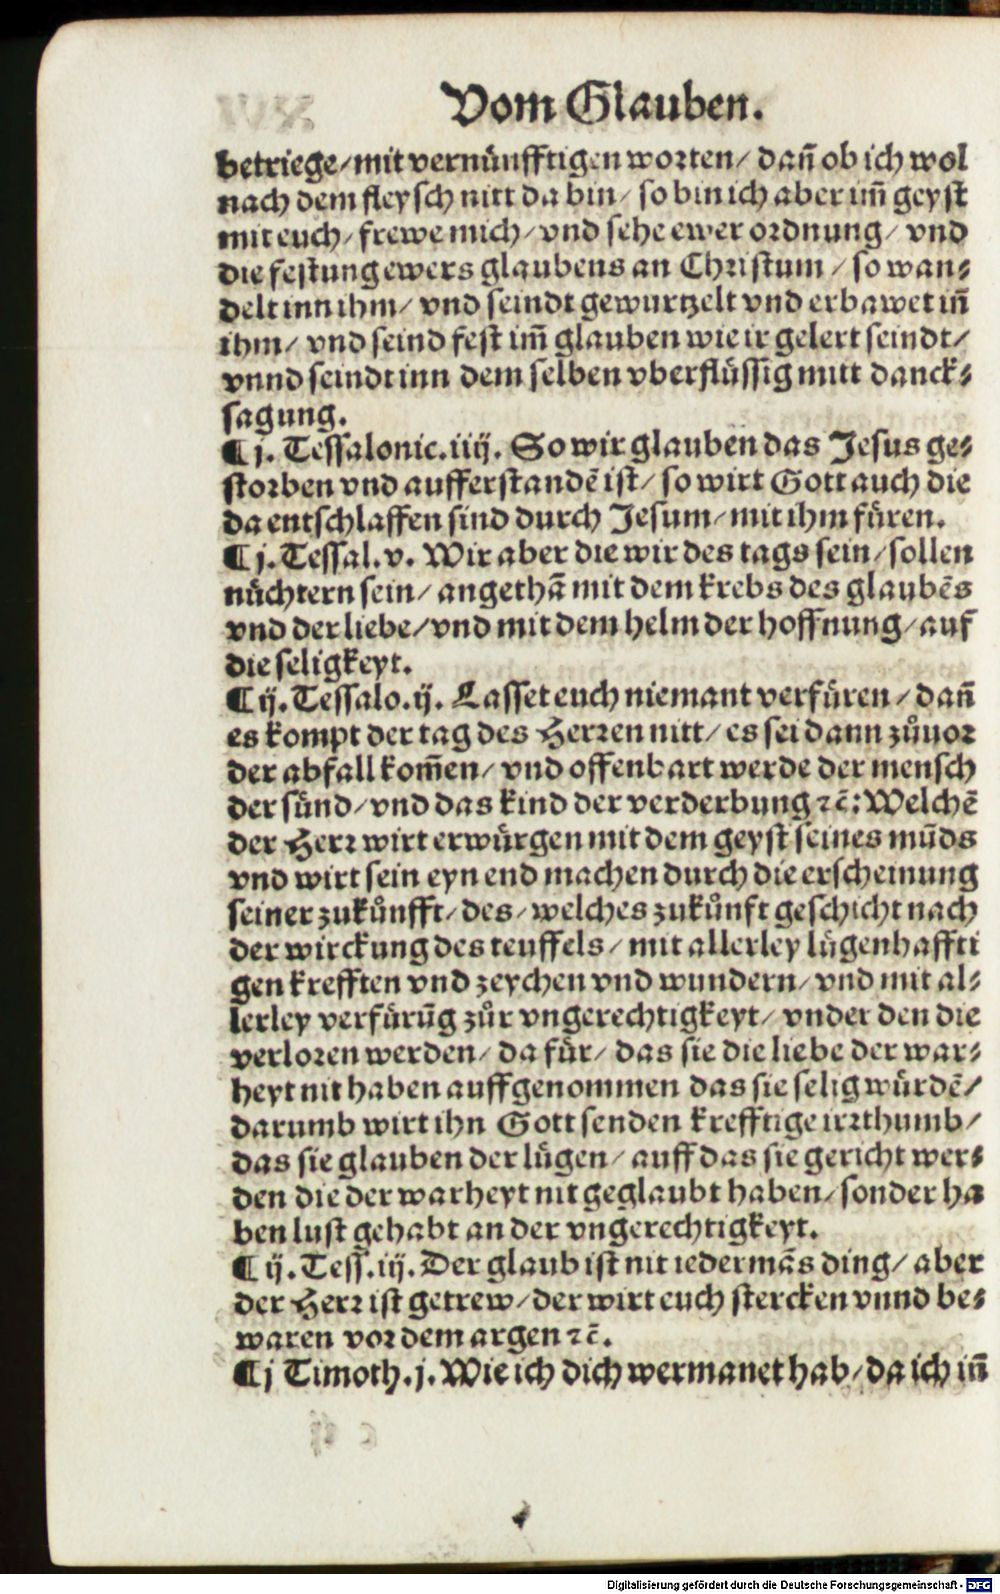 Vom Glauben.
betriege/mit vernünfftigen worten/ dañ ob ich wol
nach dem fleysch nitt da bin/ so bin ich aber im̃ geyst
mit euch/ frewe mich/ vnd sehe ewer ordnung/ vnd
die festung ewers glaubens an Christum/ so wan⸗
delt inn ihm/ vnd seindt gewurtzelt vnd erbawet iñ
ihm/ vnd seind fest im̃ glauben wie ir gelert seindt/
vnnd seindt inn dem selben vberflüssig mitt danck⸗
sagung.
¶ j. Tessalonic.iiij. So wir glauben das Jesus ge⸗
storben vnd aufferstandẽ ist/ so wirt Gott auch die
da entschlaffen sind durch Jesum/ mit ihm füren.
¶ j. Tessal.v. Wir aber die wir des tags sein/ sollen
nüchtern sein/ angethã mit dem krebs des glaubẽs
vnd der liebe/ vnd mit dem helm der hoffnung/ auf
die seligkeyt.
¶ ij. Tessalo.ij. Lasset euch niemant verfüren/ dañ
es kompt der tag des Herren nitt/ es sei dann zůuor
der abfall kom̃en/ vnd offenbart werde der mensch
der sünd/ vnd das kind der verderbung ⁊c̃: Welchẽ
der Herr wirt erwürgen mit dem geyst seines mũds
vnd wirt sein eyn end machen durch die erscheinung
seiner zukůnfft/ des/ welches zukůnft geschicht nach
der wirckung des teuffels/ mit allerley lügenhaffti
gen krefften vnd zeychen vnd wundern/ vnd mit al⸗
lerley verfürũg zůr vngerechtigkeyt/ vnder den die
verloren werden/ da für/ das sie die liebe der war⸗
heyt nit haben auffgenommen das sie selig würdẽ/
darumb wirt ihn Gott senden krefftige irrthumb/
das sie glauben der lügen/ auff das sie gericht wer⸗
den die der warheyt nit geglaubt haben/ sonder ha
ben lust gehabt an der vngerechtigkeyt.
¶ ij. Tess.iij. Der glaub ist nit iedermãs ding/ aber
der Herr ist getrew/ der wirt euch stercken vnnd be⸗
waren vor dem argen ⁊c̃.
¶ j Timoth.j. Wie ich dich wermanet hab/ da ich iñ
Digitalisierung gefördert durch die Deutsche Forschungsgemeinschaft - DFG